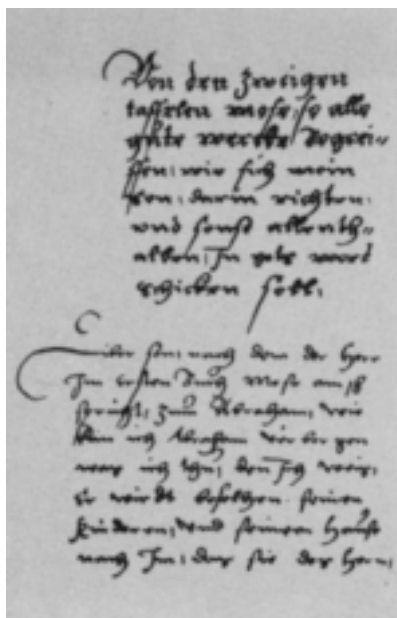 Von den zweigen
taffelen mose, so alle
gute wercke begrei=
ffen, wie sich mein
son, darin richten,
und sonst allenth=
alben, In gots wort
schicken soll,
lieber son, nach dem der herr
Im ersten Buch Mose am 18
spricht, zum Abraham, wie
kan ich Abraham verbergen
was ich thu, den Ich weis,
Er wirdt befelhen seinen
kinderen, und seinem hauße
nach Im, das sie des hern,